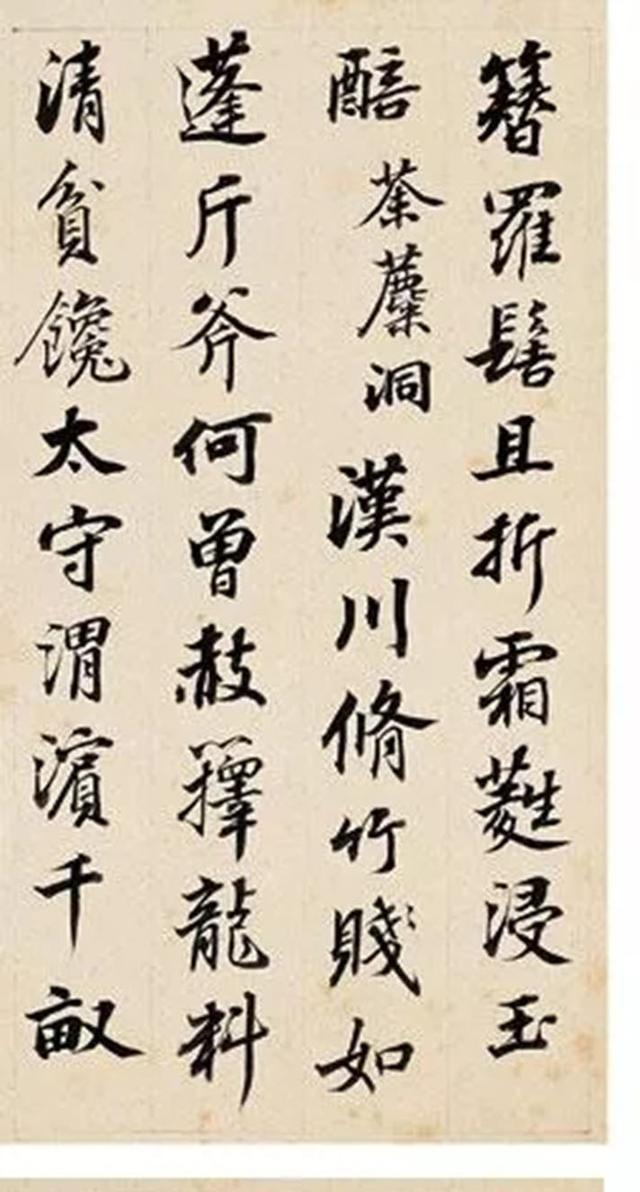 簪羅髻且折霜蕤浸玉
醅 荼蘪洞 漢川脩竹賤如
蓬斤斧何曾赦籜龍料
清貧饞太守渭濱千畝